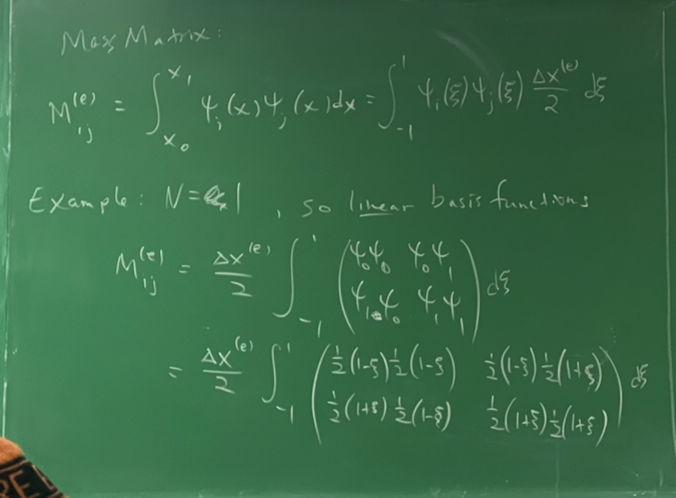 Mass Matrix:
M_ij^(e) = ∫_{x_0}^{x_1} ψ_i(x) ψ_j(x) dx = ∫_{-1}^{1} ψ_i(ξ) ψ_j(ξ) Δx^(e)/2 dξ
Example: N=1, so linear basis functions
M_ij^(e) = Δx^(e)/2 ∫_{-1}^{1} ( ψ_0ψ_0 ψ_0ψ_1
ψ_1ψ_0 ψ_1ψ_1 ) dξ
= Δx^(e)/2 ∫_{-1}^{1} ( 1/2(1-ξ)1/2(1-ξ) 1/2(1-ξ)1/2(1+ξ)
1/2(1+ξ)1/2(1-ξ) 1/2(1+ξ)1/2(1+ξ) ) dξ